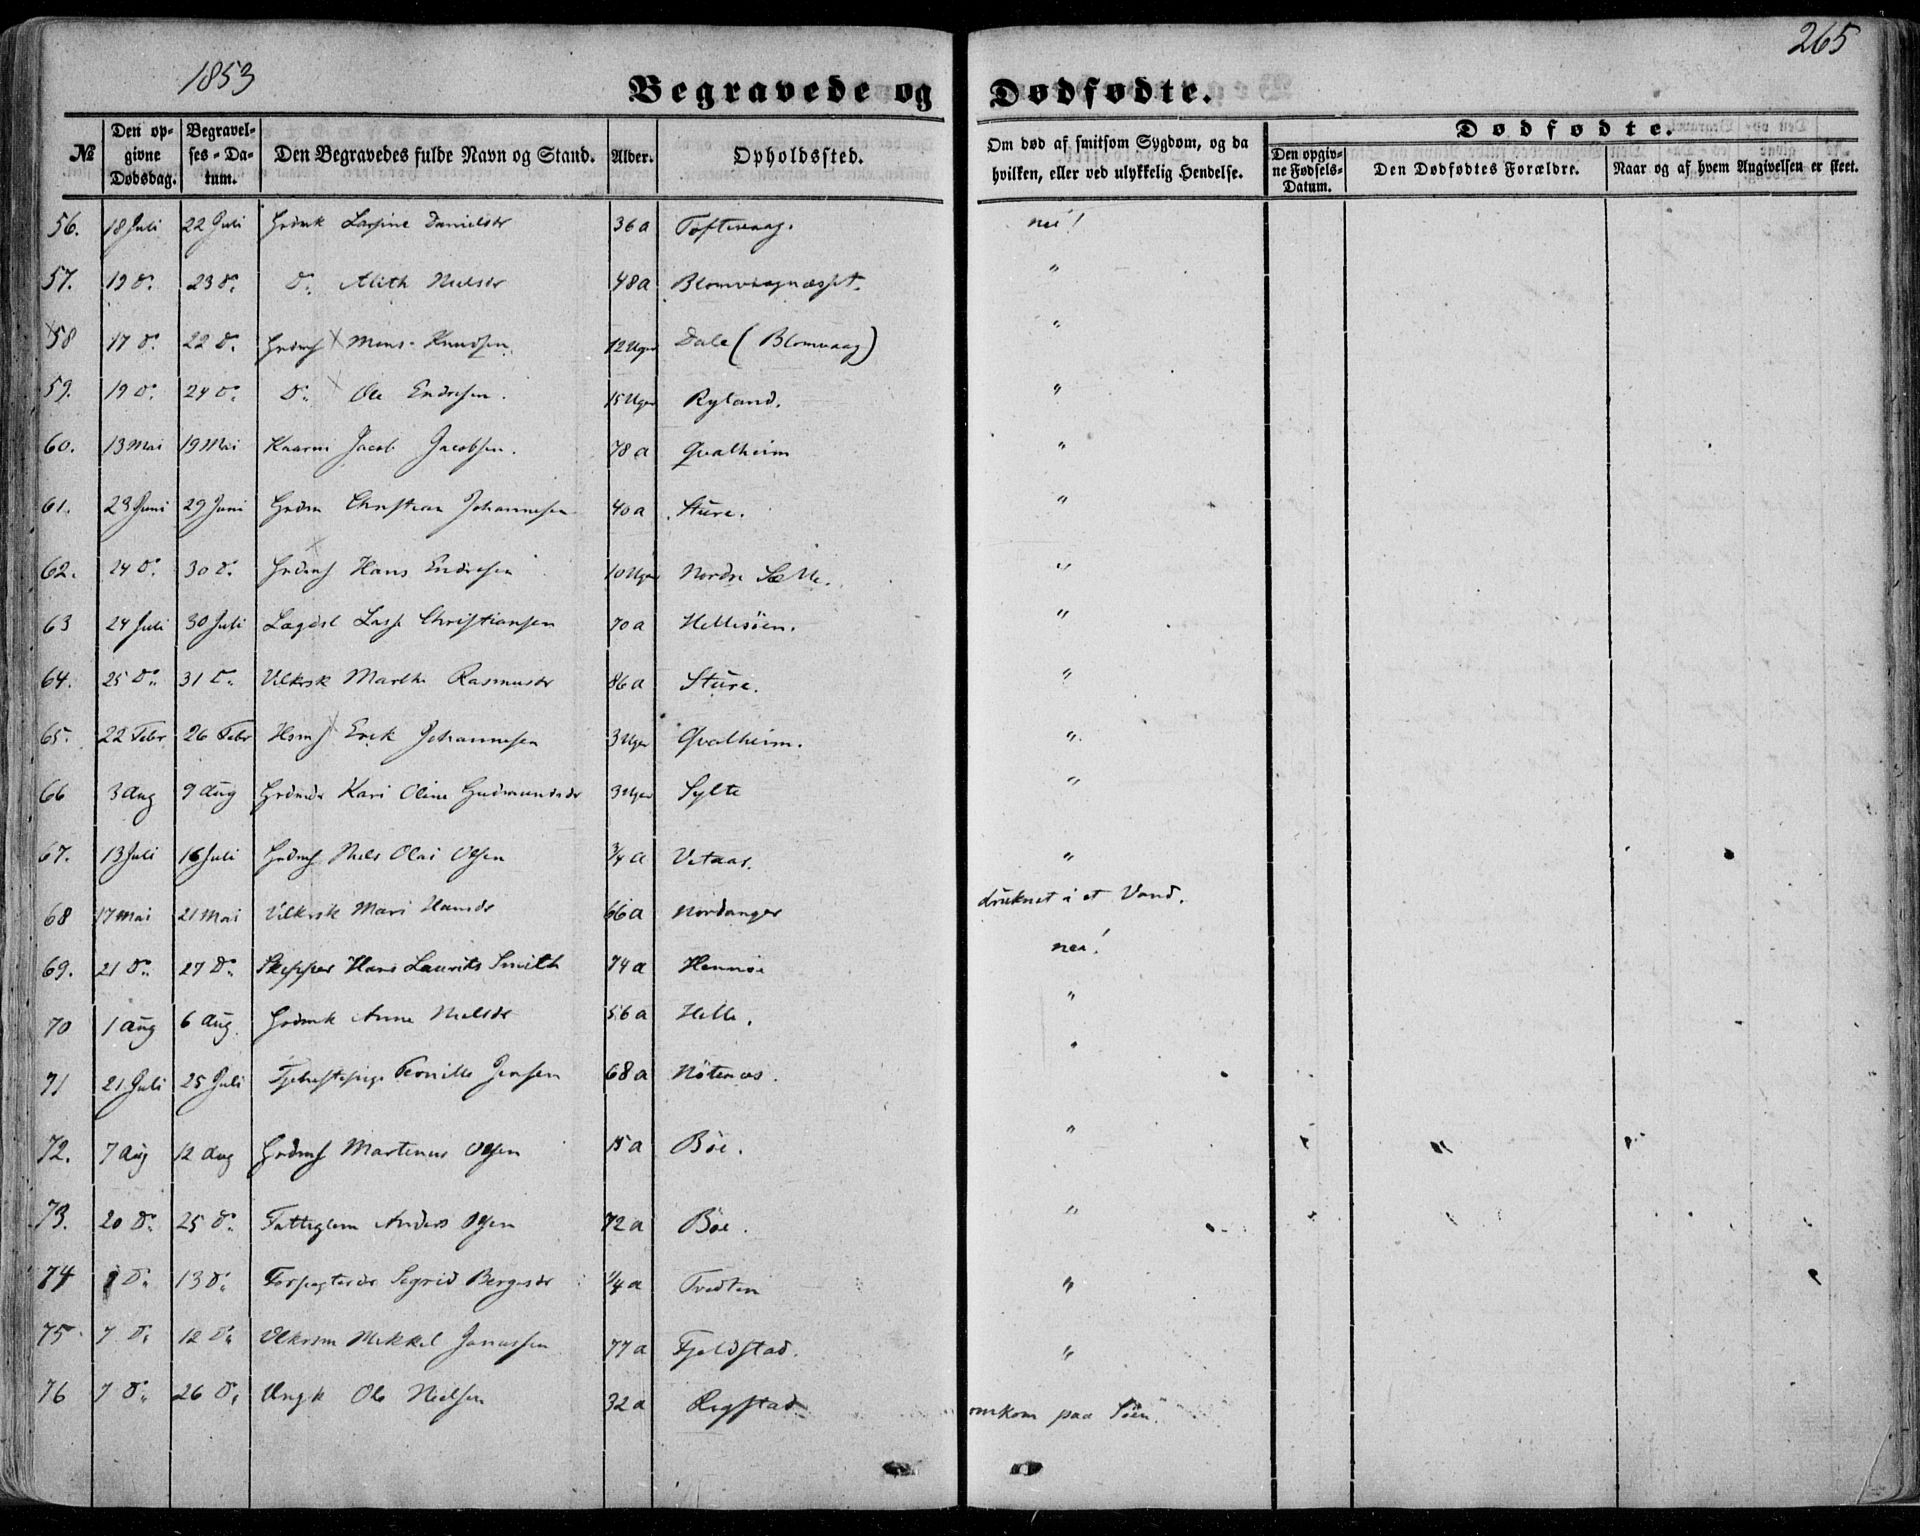 1853
265
Begravede og Dødfødte.
№ Den opgivne Dødsdag. Begravelses-Datum. Den Begravedes fulde Navn og Stand. Alder. Opholdssted. Om død af smitsom Sygdom, og da hvilken, eller ved ulykkelig Hendelse. Dødfødte. Den opgivne Fødsels-Datum. Den Dødfødtes Forældre. Naar og af hvem Angivelsen er skeet.
56. 18 Juli 22 Juli Grdmk Larsine Danielsdr 36 a Toftevaag. nei!
57. 19 D: 23 D: D: Alith Nielsdr 48 a Blomvaagnæsset. "
58 17 D: 22 D: Grdms Mons Knudsen. 12 Uger Dale (Blomvaag) "
59. 19 D: 24 D: D: Ole Endresen. 15 Uger Ryland. "
60. 13 Mai 19 Mai Kaarm Jacob Jacobsen. 78 a Qvalheim "
61. 23 Juni 29 Juni Grdm Christian Johannesen 40 a Sture. "
62. 24 D: 30 D: Grdms Hans Endresen 10 Uger Nordre Sælle. "
63 24 Juli 30 Juli Lægdsl Lasse Christiansen 70 a Hellisöen. "
64. 25 D: 31 D: Vilkrsk Marthe Rasmusdr 86 a Sture. "
65. 22 Febr 26 Febr Hsms Erik Johannesen 3 Uger Qvalheim. "
66 3 Aug 9 Aug Grdmdr Kari Oline Gudmundsdr 3 Uger Sylte "
67. 13 Juli 16 Juli Grdms Niels Olai Olsen 3/4 a Vetaas. "
68 17 Mai 21 Mai Vilkrsk Mari Hansdr 66 a Nordanger druknet i et Vand.
69. 21 D: 27 D: Skipper Hans Laurits Smith 74 a Hennöe nei!
70 1 Aug 6 Aug. Grdmk Anne Nielsdr 56 a Helle. "
71 21 Juli 25 Juli Pernille Jensen 68 a Nötenæs. "
72. 7 Aug 12 Aug Grdms Martinus Olsen 15 a Böe. "
73. 20 D: 25 D: Fattiglem Anders Olsen 72 a Böe. "
74 D: 13 D: Forpagterdr Sigrid Bergesdr 1/4 a Tvedten "
75. 7 D: 12 D: Vilkrsm Mikkel Jonassen 77 a Fjeldstad. "
76 7 D: 26 D: Ungk Ole Nielsen 32 a Rigstad omkom paa Söen.